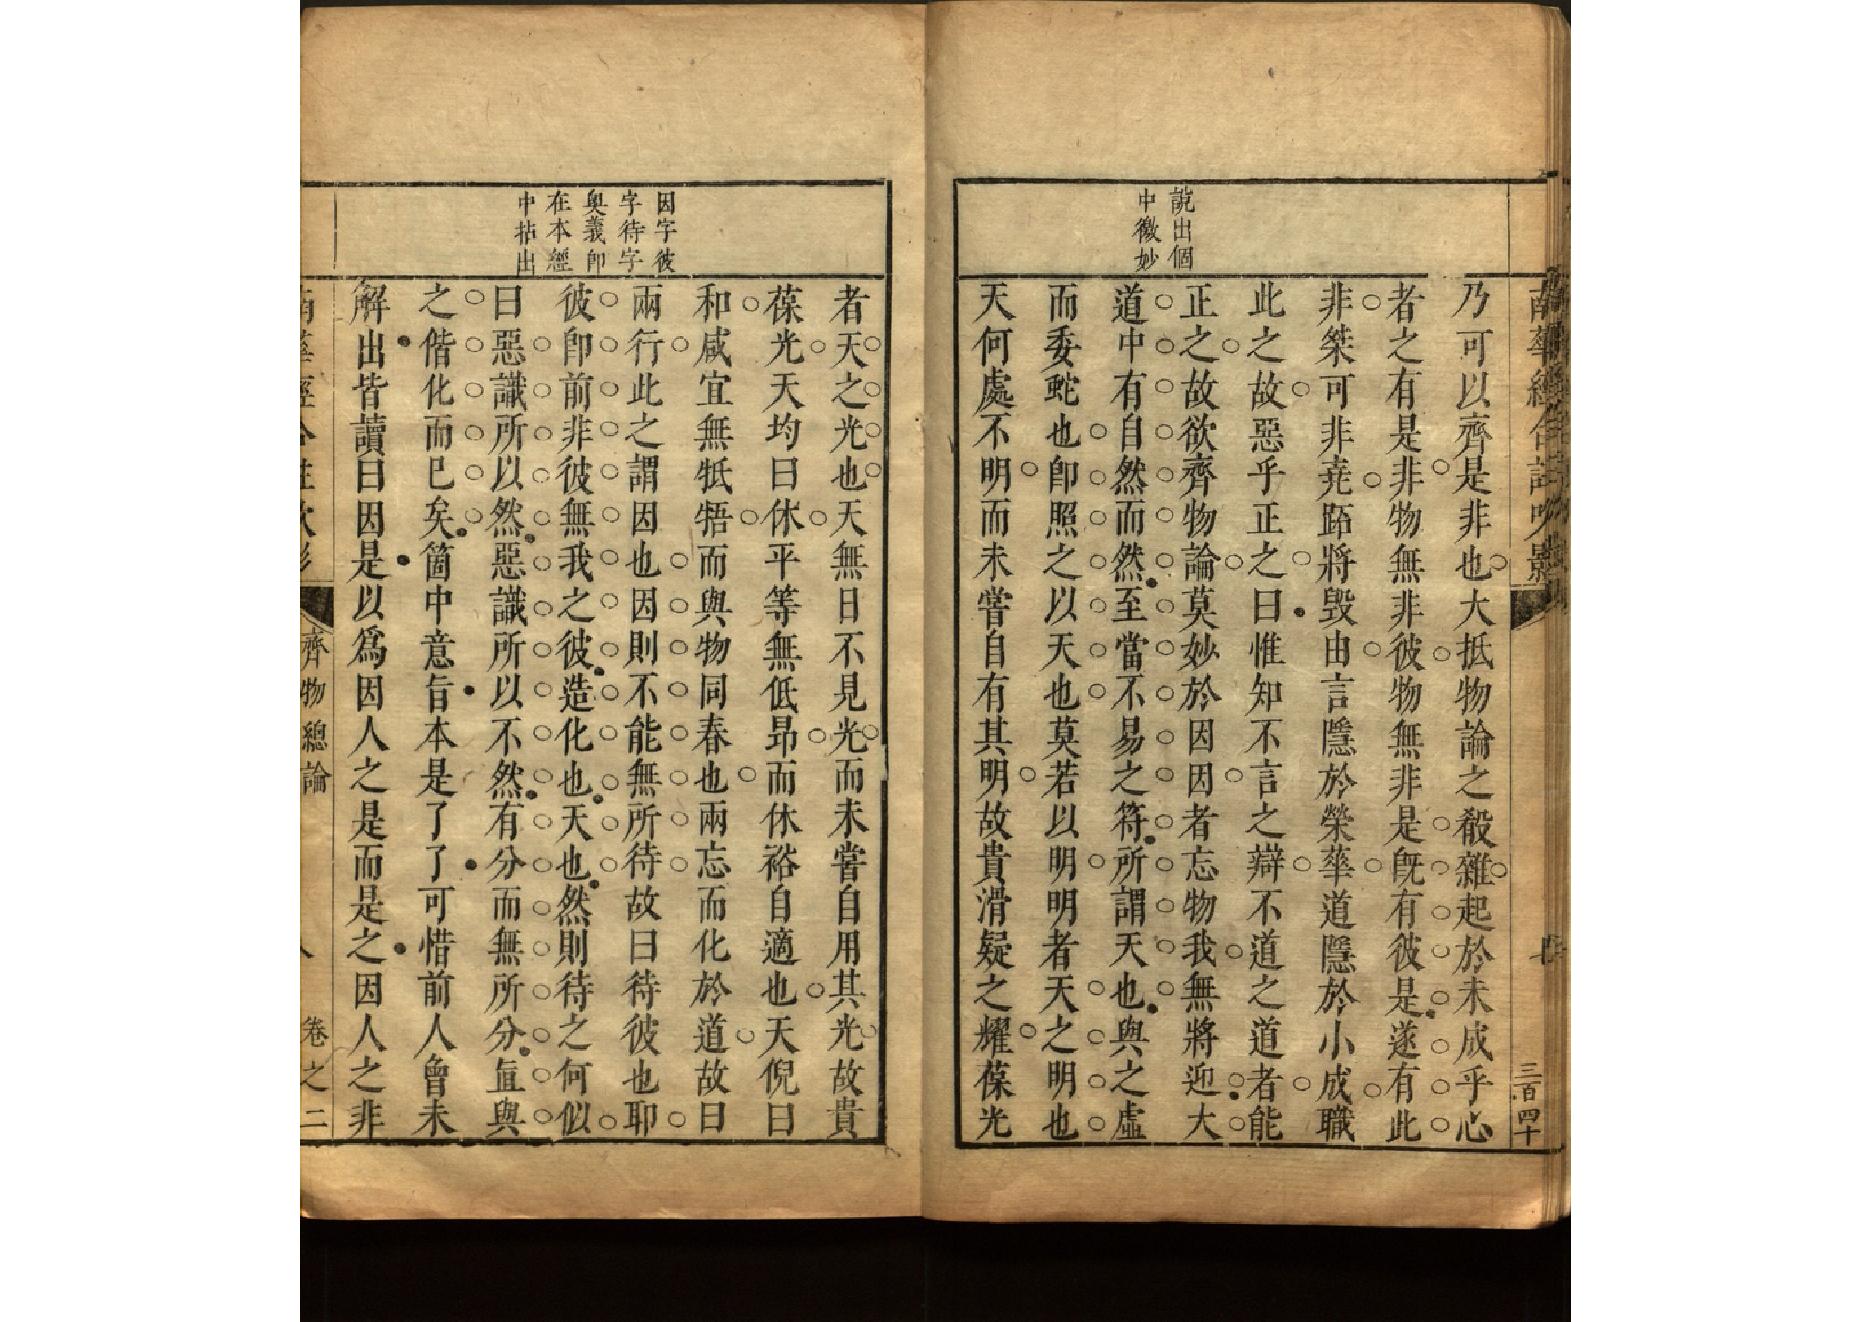 南華經合註吹影
三百四十
說出個
中微妙
乃可以齊是非也大抵物論之殽雜起於未成乎心
者之有是非物無非彼物無非是旣有彼是遂有此
非桀可非堯跖將毁由言隱於榮華道隱於小成職
此之故惡乎正之曰惟知不言之辯不道之道者能
正之故欲齊物論莫妙於因因者忘物我無將迎大
道中有自然而然至當不易之符所謂天也與之虛
而委蛇也卽照之以天也莫若以明明者天之明也
天何處不明而未嘗自有其明故貴滑疑之耀葆光
因字彼
字待字
奧義卽
在本經
中拈出
者天之光也天無日不見光而未嘗自用其光故貴
葆光天均曰休平等無低昂而休裕自適也天倪曰
和咸宜無牴牾而與物同春也兩忘而化於道故曰
兩行此之謂因也因則不能無所待故曰待彼也耶
彼卽前非彼無我之彼造化也天也然則待之何似
曰惡識所以然惡識所以不然有分而無所分亙與
之偕化而已矣箇中意旨本是了了可惜前人曾未
解出皆讀曰因是以爲因人之是而是之因人之非
南華經合註吹影
齊物總論
卷之二